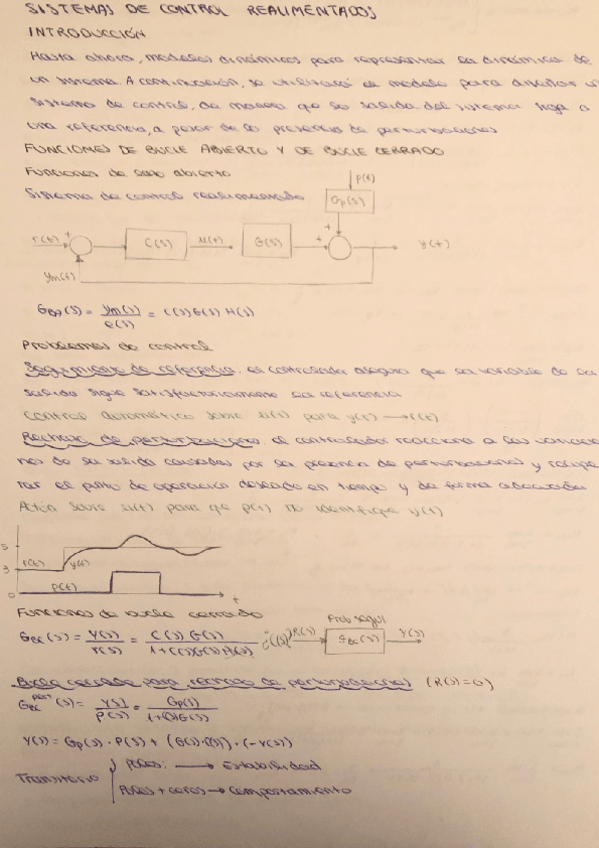 SISTEMAS DE CONTROL REALIMENTADOS
INTRODUCCIÓN
Hasta ahora, modelos dinámicos para representar la dinámica de
un sistema. A continuación, se utilizará el modelo para diseñar un
sistema de control, de manera que la salida del sistema siga a
una referencia, a pesar de la presencia de perturbaciones
FUNCIONES DE BUCLE ABIERTO Y DE BUCLE CERRADO
Funciones de lazo abierto
p(t)
Sistema de control realimentado
Gp(s)
r(t) + C(s) u(t) G(s) + + y(t)
ym(t) -
G_BA(s) = ym(s)/e(s) = C(s) G(s) H(s)
Problemas de control
Seguimiento de referencia: el controlador asegura que la variable de la
salida sigue satisfactoriamente la referencia
Control automático sobre u(t) para y(t) → r(t)
Rechazo de perturbaciones el controlador reacciona a las variacio
nes de la salida causadas por la presencia de perturbaciones y recupe
rar el punto de operación deseado en tiempo y de forma adecuada
Actúa sobre u(t) para que p(t) no y(t)
5
3 r(t) y(t)
0 p(t) t
Funciones de bucle cerrado
Prob segui
G_BC(s) = Y(s)/r(s) = C(s) G(s)/1+C(s)G(s)H(s) R(s) G_BC(s) Y(s)
Bucle cerrado para rechazo de perturbaciones (R(s)=0)
G_BC^pert(s) = Y(s)/P(s) = Gp(s)/1+C(s)G(s)
Y(s) = Gp(s) · P(s) + (G(s)·C(s)) · (-Y(s))
Polos: → Estabilidad
Transitorio
Polos + ceros → comportamiento